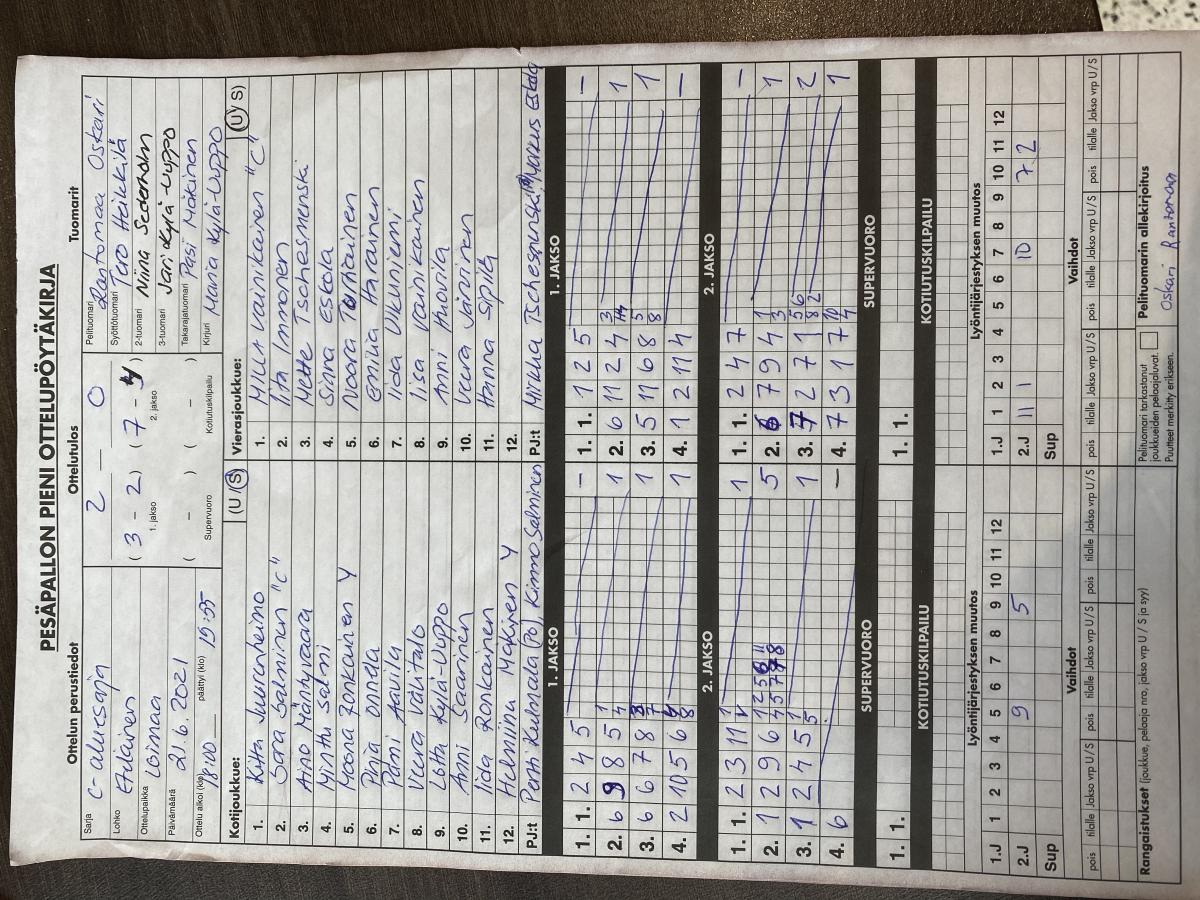 PESÄPALLON PIENI OTTELUPÖYTÄKIRJA
Ottelun perustiedot
Ottelutulos
Tuomarit
Sarja C-aluesarja
Lohko Eteläinen
Ottelupaikka Loimaa
Päivämäärä 21.6.2021
Ottelu alkoi (klo) 18:00 päättyi (klo) 19:55
2 — 0
( 3 - 2 ) ( 7 - 4 )
1. jakso 2. jakso
( - ) ( - )
Supervuoro Kotiutuskilpailu
Pelituomari Rantomaa Oskari
Syöttötuomari Tero Heikkilä
2-tuomari Niina Sederholm
3-tuomari Jari Kylä-Uuppo
Takarajatuomari Pasi Mäkinen
Kirjuri Maria Kylä-Uuppo
Kotijoukkue: (U / S)
1. Kitta Juurenheimo
2. Sara Salminen "C"
3. Aino Mäntyvaara
4. Minttu Salmi
5. Moona Ronkainen Y
6. Pinja Onnela
7. Pami Aavila
8. Veera Välitalo
9. Lotta Kylä-Uuppo
10. Anni Saarinen
11. Iida Ronkainen
12. Helmiina Mäkinen Y
PJ:t Pertti Kulmala (PO), Kimmo Salminen
Vierasjoukkue: (U / S)
1. Milla Vainikainen "C"
2. Iita Immonen
3. Mette Tschesmenski
4. Sinna Eskola
5. Noora Tornainen
6. Emilia Haranen
7. Iida Ylituniemi
8. Iisa Vainikainen
9. Anni Huovila
10. Veera Järvinen
11. Hanna Sipilä
12.
PJ:t Miikka Tschesmenski (PO), Markus Eskola
1. JAKSO
1. 1. 2 4 5 –
2. 6 9 8 5 1 4 1
3. 6 6 7 8 7 1
4. 2 10 5 6 8 1
1. JAKSO
1. 1. 1 2 5 –
2. 6 11 2 4 3 1
3. 5 11 6 8 5 8 1
4. 1 2 11 4 –
2. JAKSO
1. 1. 2 3 11 1 1
2. 1 2 9 6 5
3. 1 2 4 5 1 5 1
4. 6 –
2. JAKSO
1. 1. 2 4 7 –
2. 6 7 9 4 1 3 1
3. 7 2 7 1 5 6 8 2 2
4. 7 3 1 7 10 4 1
SUPERVUORO
1. 1.
SUPERVUORO
1. 1.
KOTIUTUSKILPAILU
KOTIUTUSKILPAILU
Lyöntijärjestyksen muutos
1.J 1 2 3 4 5 6 7 8 9 10 11 12
2.J 9 5
Sup
Lyöntijärjestyksen muutos
1.J 1 2 3 4 5 6 7 8 9 10 11 12
2.J 11 1 10 7 2
Sup
Vaihdot
pois tilalle Jakso vrp U/S pois tilalle Jakso vrp U/S pois tilalle Jakso vrp U/S
Vaihdot
pois tilalle Jakso vrp U/S pois tilalle Jakso vrp U/S pois tilalle Jakso vrp U/S
Rangaistukset (joukkue, pelaaja nro, jakso vrp, U / S ja syy)
Pelituomari tarkastanut
joukkueiden pelaajaluvat.
Puutteet merkitty erikseen.
Pelituomarin allekirjoitus
Oskari Rantomaa